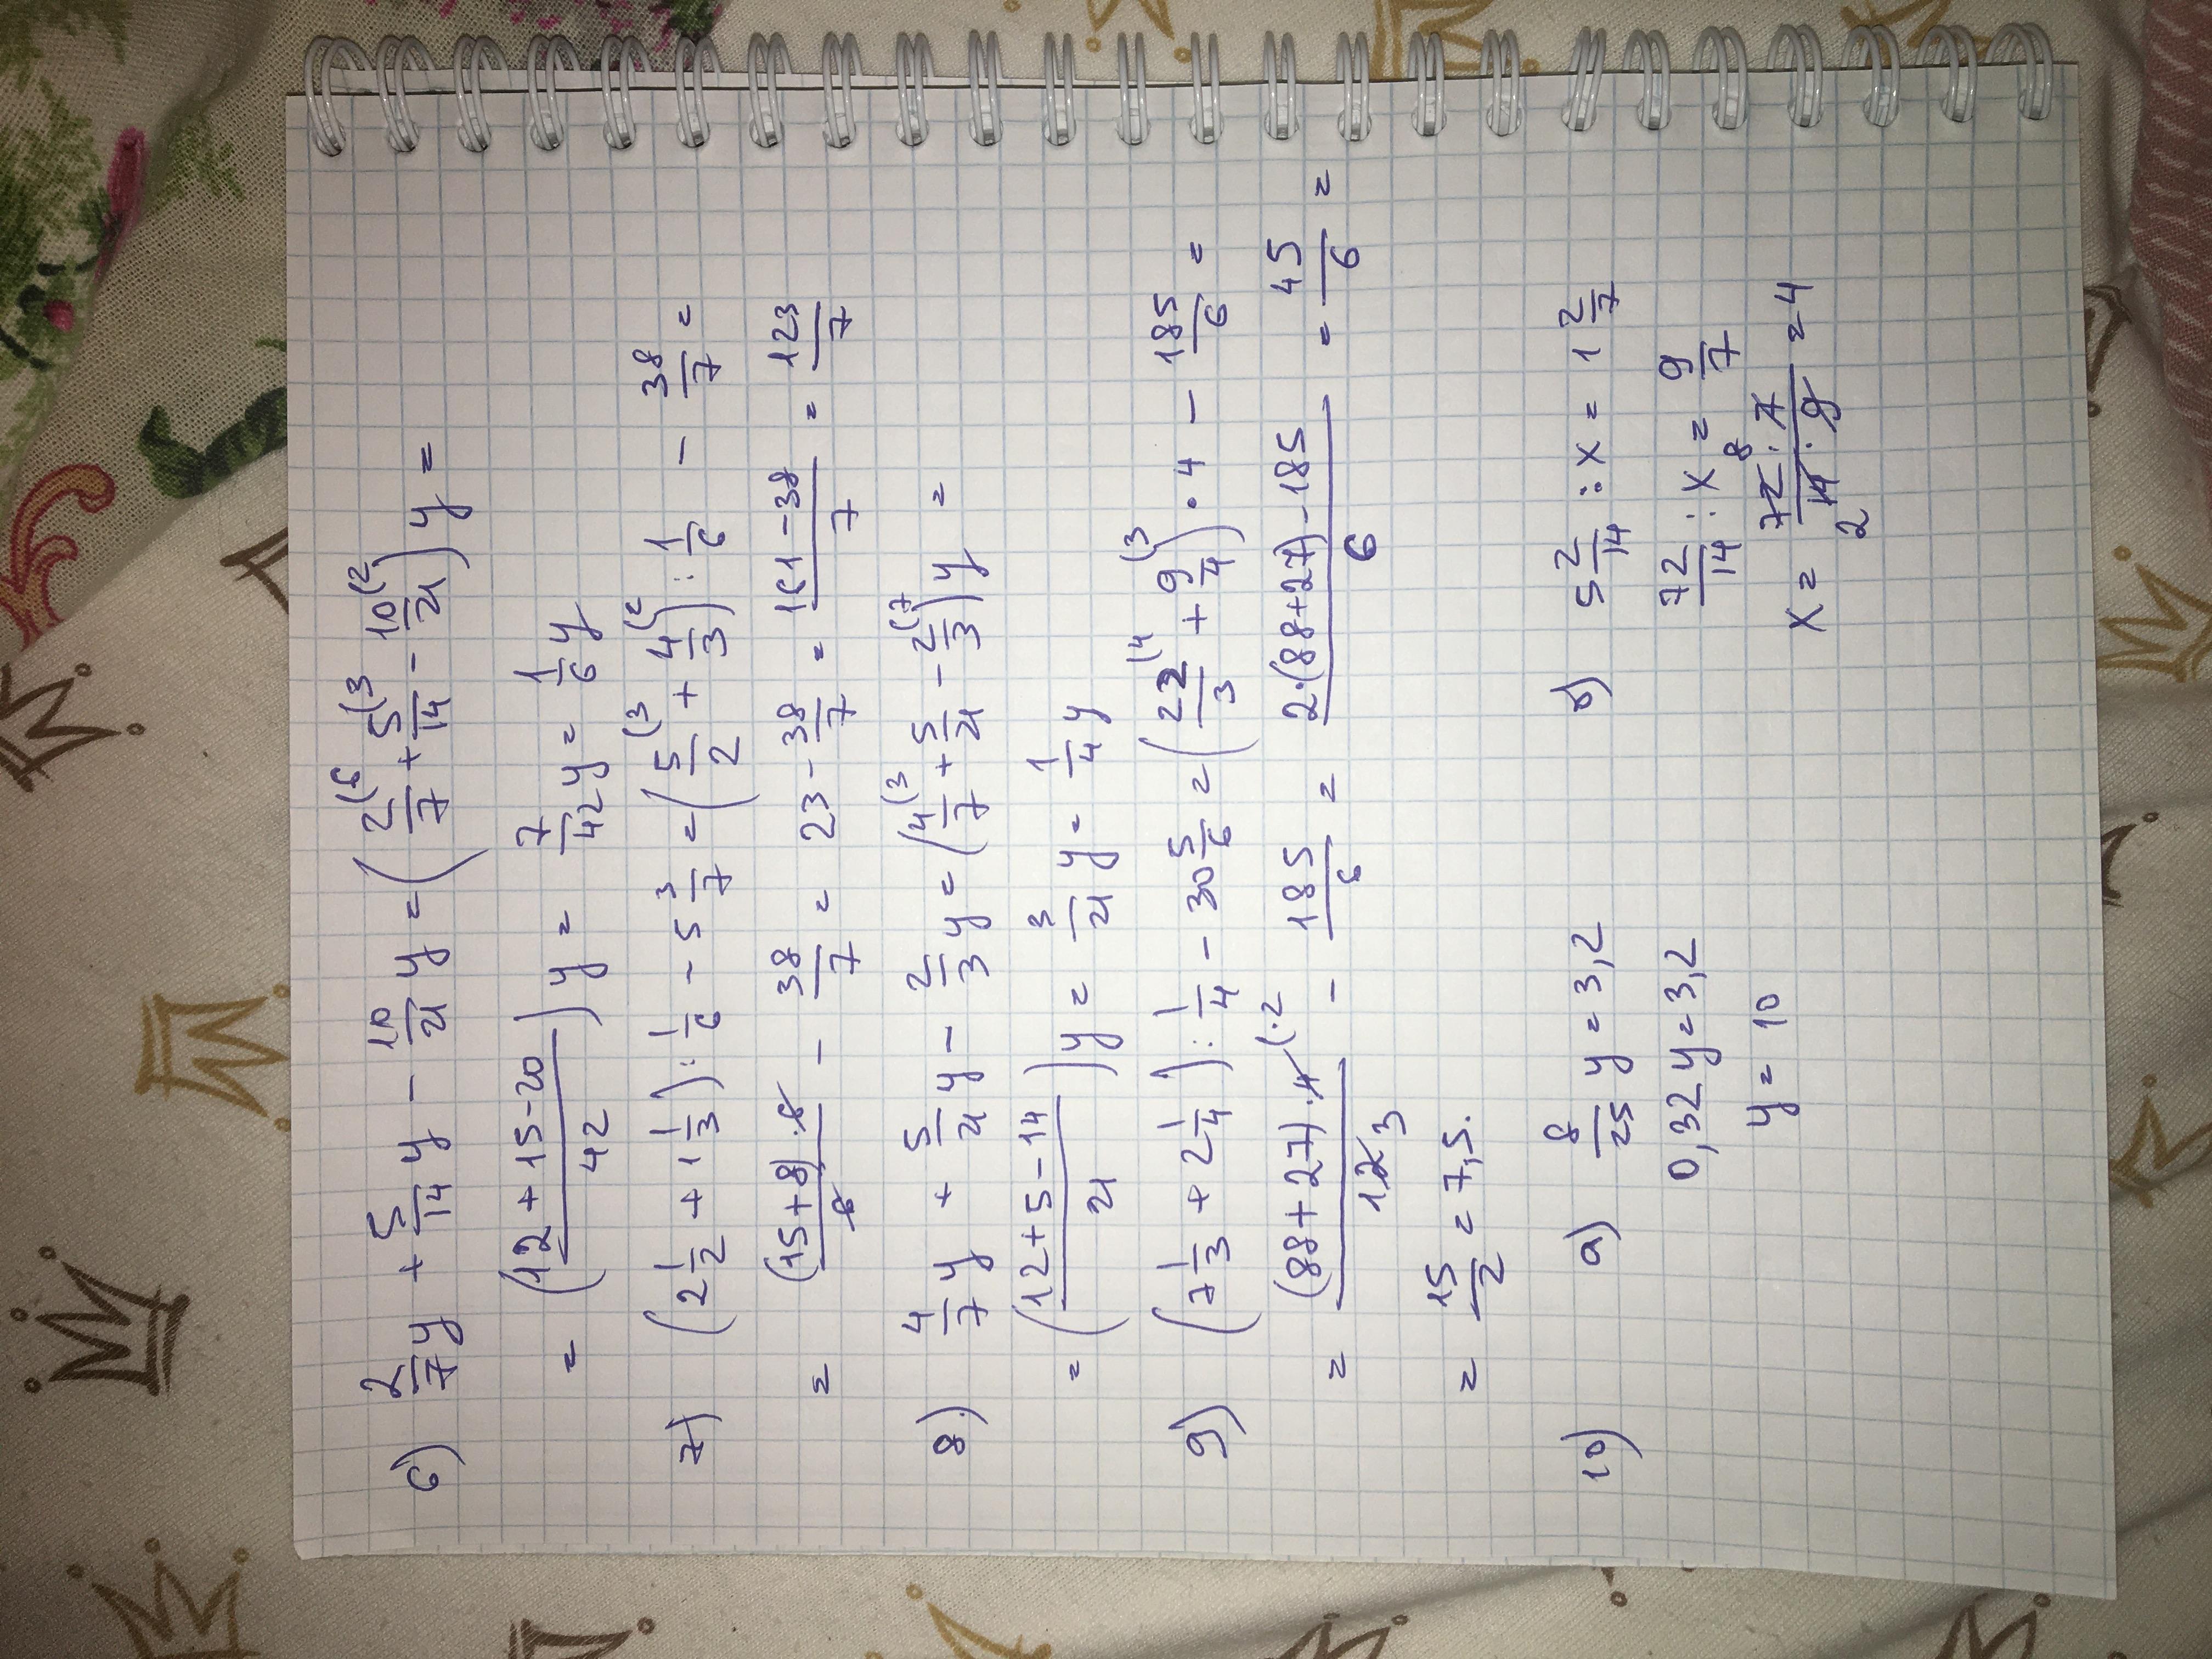 6) 2/7 y + 5/14 y − 10/21 y = (2/7 (6 + 5/14 (3 − 10/21 (2) y =
= ((12 + 15 - 20)/42) y = 7/42 y = 1/6 y
7) (2 1/2 + 1 1/3) : 1/6 − 5 3/7 = (5/2 (3 + 4/3 (2) : 1/6 − 38/7 =
= (15 + 8)·6/6 − 38/7 = 23 − 38/7 = (161 − 38)/7 = 123/7
8) 4/7 y + 5/21 y − 2/3 y = (4/7 (3 + 5/21 − 2/3 (7) y =
= ((12 + 5 − 14)/21) y = 3/21 y = 1/4 y
9) (7 1/3 + 2 1/4) : 1/4 − 30 5/6 = (22/3 (4 + 9/4 (3) · 4 − 185/6 =
= (88 + 27)·4/12 3 (·2 − 185/6 = (2·(88+27) − 185)/6 = 45/6 =
= 15/2 = 7,5.
10) a) 8/25 y = 3,2
0,32 y = 3,2
y = 10
б) 5 2/14 : x = 1 2/7
72/14 : x = 9/7
x = 72 8 · 7/14 2 · 9 = 4